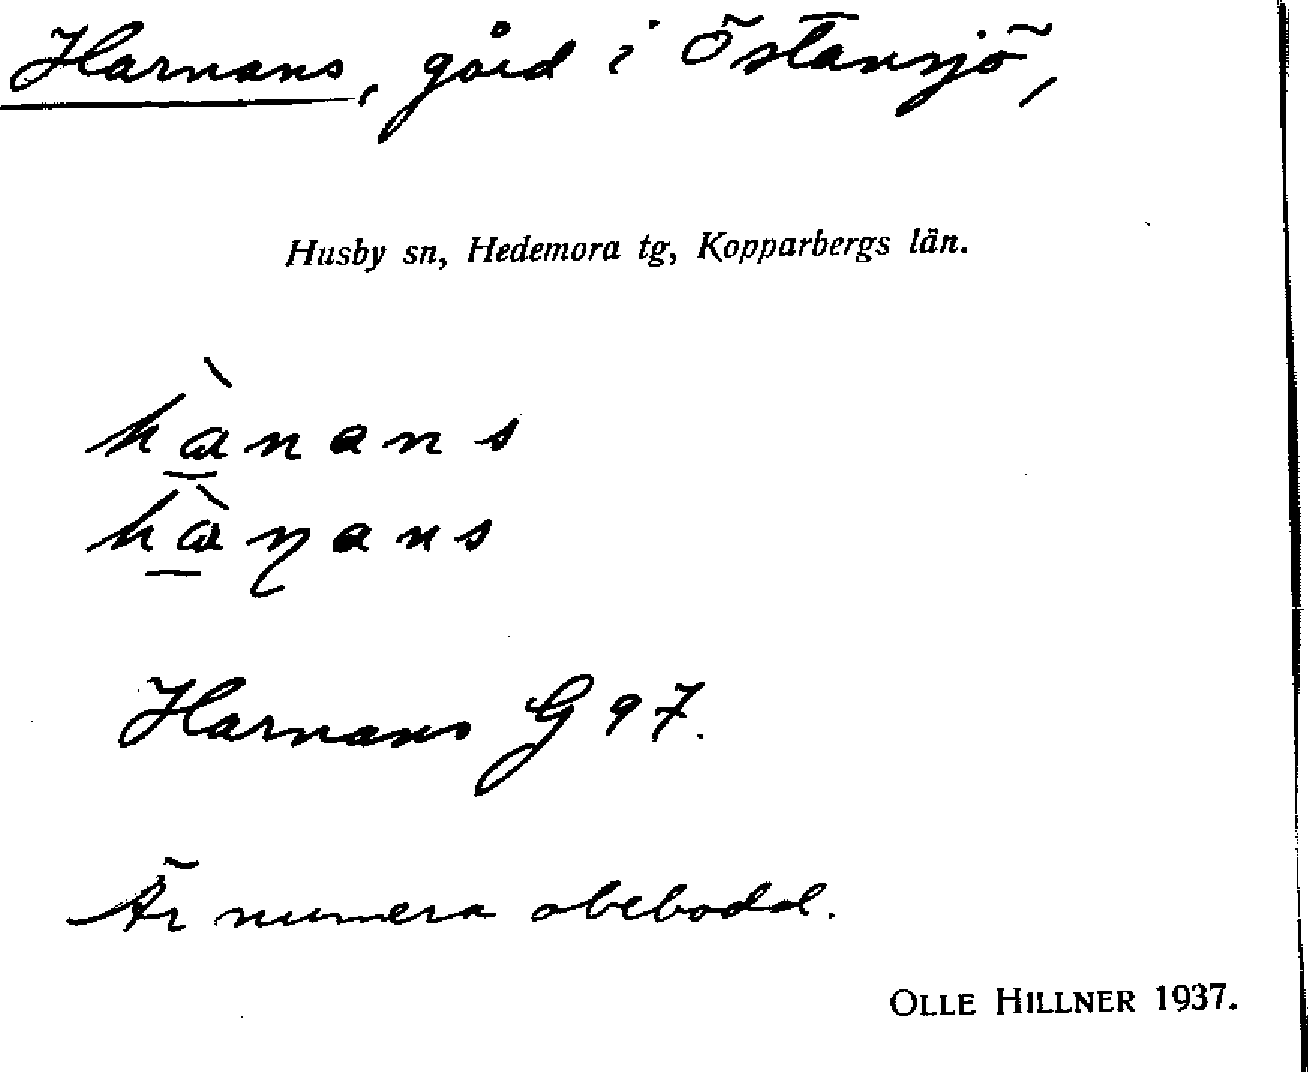 Harnans, gård i Östansjö,
Husby sn, Hedemora tg, Kopparbergs län.
hànans
hàṉans
Harnans G 97.
Är numera obebodd.
OLLE HILLNER 1937.